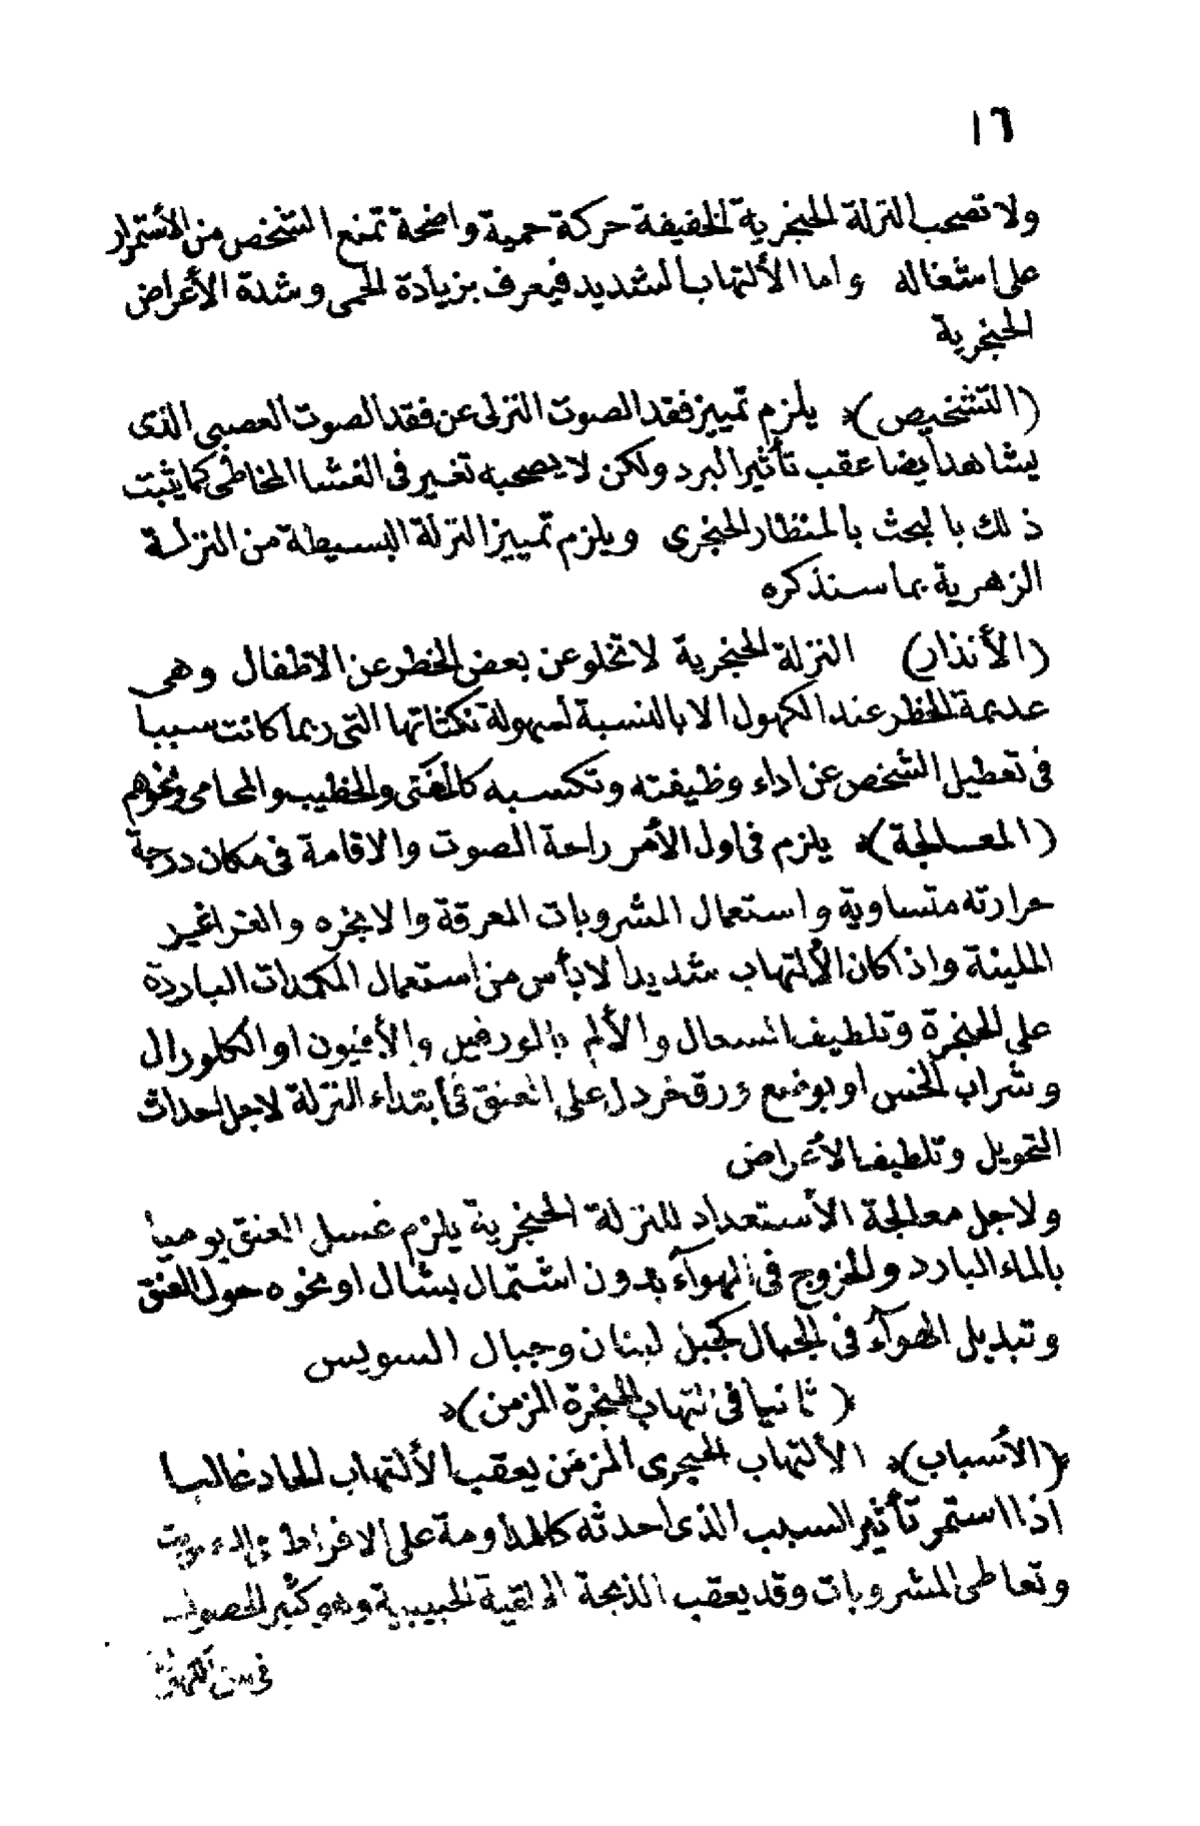 ١٦
ولا تصحب النزلة الحنجرية الخفيفة حركة حمية واضحة تمنع الشخص من الأستمرار
على اشغاله وأما الألتهاب الشديد فيعرف بزيادة الحمى وشدة الأعراض
الحنجرية
(التشخيص) يلزم تمييز فقد الصوت النزلى عن فقد الصوت العصبى الذى
يشاهد أيضا عقب تأثير البرد ولكن لا يصحبه تغير فى الغشا المخاطى كما يثبت
ذلك بالبحث بالمنظار الحنجرى ويلزم تمييز النزلة البسيطة من النزلة
الزهرية بما سنذكره
(الأنذار) النزلة الحنجرية لا تخلو عن بعض الخطر عن الاطفال وهى
عديمة الخطر عند الكهول الا بالنسبة لسهولة نكثاتها التى ربما كانت سببا
فى تعطيل الشخص عن اداء وظيفته وتكسبه كالمغنى والخطيب والمحامى ونحوهم
(المعالجة) يلزم فى اول الأمر راحة الصوت والاقامة فى مكان درجة
حرارته متساوية واستعمال المشروبات المعرقة والابخره والغراغير
الملينة واذا كان الألتهاب شديدا لا بأس من استعمال المكمدات الباردة
على الحنجرة وتلطيف السعال والألم بالمورفين والأفيون او الكلورال
وشراب الخس او بوضع ورق خردل على العنق فى أبتداء النزلة لاجل احداث
التحويل وتلطيف الأعراض
ولاجل معالجة الأستعداد للنزلة الحنجرية يلزم غسل العنق يوميا
بالماء البارد والخروج فى الهوآء بدون اشتمال بشال او نحوه حول العنق
وتبديل الهوآء فى الجبال كجبل لبنان وجبال السويس
(ثانيا فى التهاب الحنجرة المزمن)
(الأسباب) الألتهاب الحنجرى المزمن يعقب الألتهاب الحاد غالبا
اذا استمر تأثير السبب الذى أحدثه كالمداومة على الافراط
وتعاطى المشروبات وقد يعقب الذبحة الحلقية الحبيبية وهو كثير الحصول
فى سن